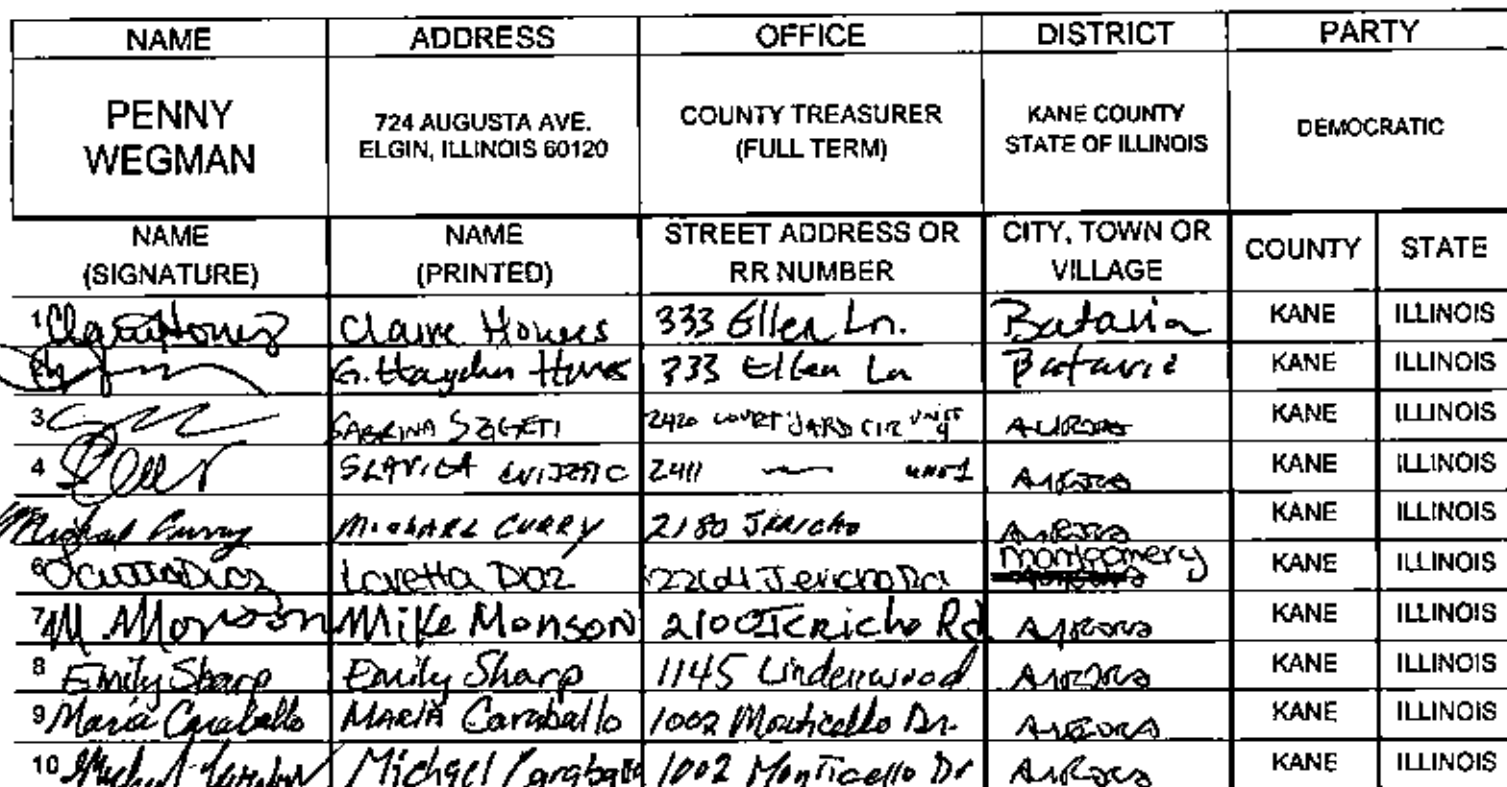 NAME ADDRESS OFFICE DISTRICT PARTY
PENNY WEGMAN 724 AUGUSTA AVE. ELGIN, ILLINOIS 60120 COUNTY TREASURER (FULL TERM) KANE COUNTY STATE OF ILLINOIS DEMOCRATIC
NAME (SIGNATURE) NAME (PRINTED) STREET ADDRESS OR RR NUMBER CITY, TOWN OR VILLAGE COUNTY STATE
1 Claire 333 Ellen Ln. Batavia KANE ILLINOIS
2 G. Hayden 333 Ellen Ln Batavia KANE ILLINOIS
3 SABRINA SZIGETI 2420 COURTYARD CIR UNIT 4 AURORA KANE ILLINOIS
4 SLAVICA 2411 UNIT 1 AURORA KANE ILLINOIS
Michael Curry MICHAEL CURRY 2180 JERICHO AURORA KANE ILLINOIS
6 Loretta Jericho Rd Montgomery KANE ILLINOIS
7 M. Monson Mike Monson 2100 Jericho Rd AURORA KANE ILLINOIS
8 Emily Sharp Emily Sharp 1145 Lindenwood AURORA KANE ILLINOIS
9 Maria Caraballo MARIA Caraballo 1002 Monticello Dr. AURORA KANE ILLINOIS
10 Michael Caraballo 1002 Monticello Dr AURORA KANE ILLINOIS